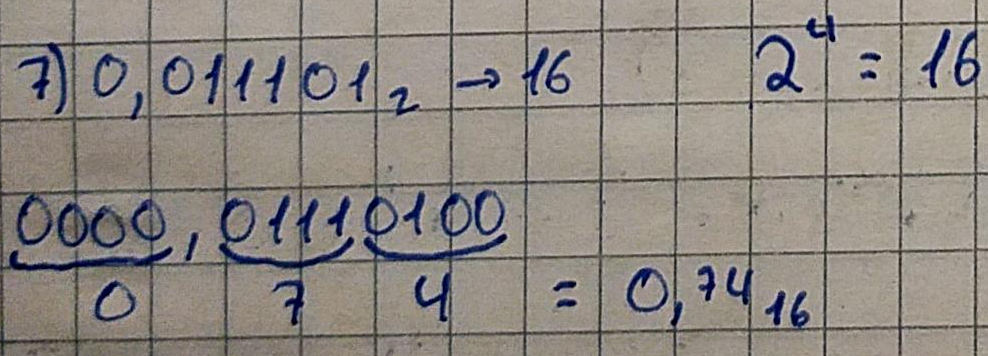 7) 0,011101₂ → 16 2⁴ = 16
0000, 0111 0100
0 7 4 = 0,74₁₆